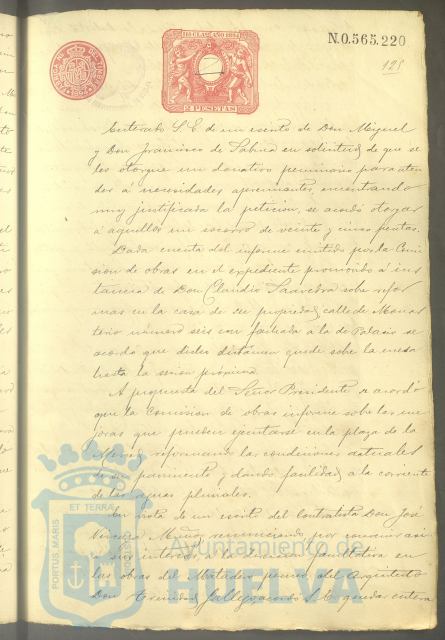 11ª CLASE AÑO 1894
N.0.565.220
125
2 PESETAS
Enterado S. E. de un escrito de Don Miguel
y Don Francisco de en solicitud de que se
les otorgue un donativo pecuniario para aten
der á necesidades apremiantes, encontrando
muy justificada la petición, se acordó otorgar
á aquellos un socorro de veinte y cinco pesetas.
Dada cuenta del informe emitido por la Comi
sion de obras en el expediente promovido á ins
tancia de Don Claudio Saavedra sobre refor
mas en la casa de su propiedad, calle de Monas
terio número seis con fachada á la de Palacio se
acordó que dicho dictamen quede sobre la mesa
hasta la sesión próxima.
A propuesta del Señor Presidente se acordó
que la Comision de obras informe sobre las me
joras que pueden ejecutarse en la plaza de la
reformando las condiciones actuales
de su pavimento y dando facilidad á la corriente
de las aguas pluviales.
En vista de un escrito del contratista Don José
Muñoz renunciando, por convenir asi
á sus intereses, á la recepcion en
las obras del Matadero, del Arquitecto
Don Trinidad Gallego, acordó S. E. quedar entera
PORTUS MARIS
ET TERRAE
Ayuntamiento de
HUELVA